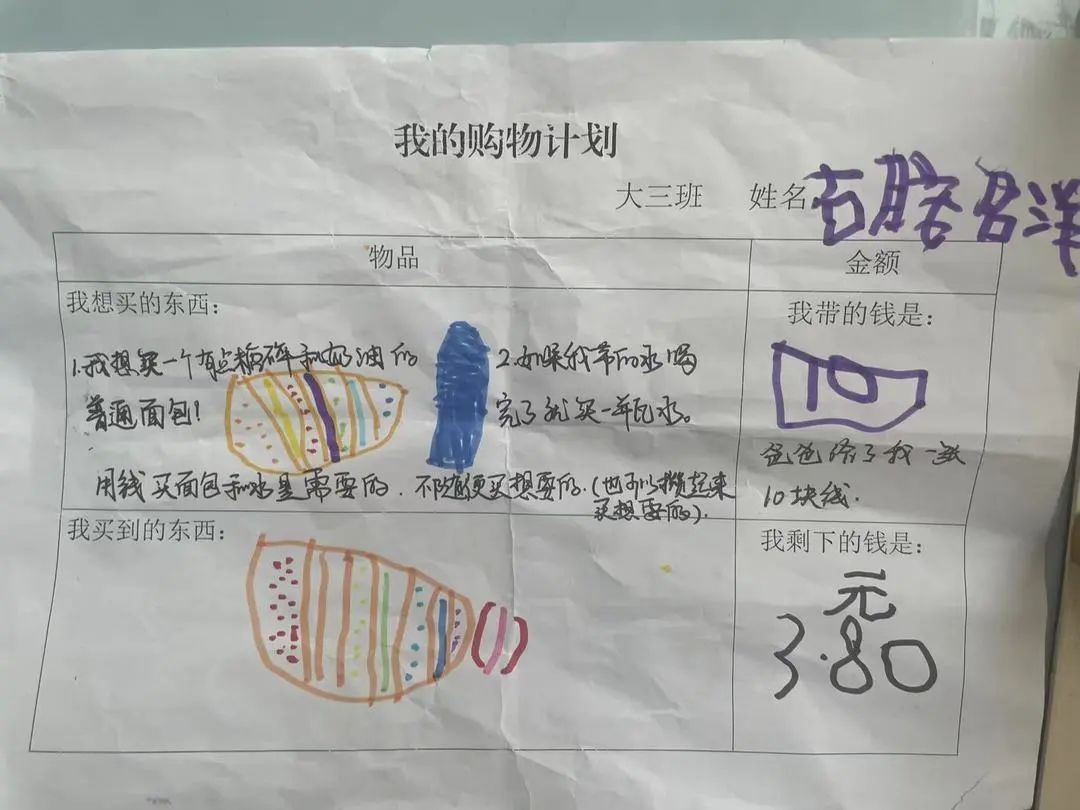 我的购物计划
大三班 姓名
物品 金额
我想买的东西: 我带的钱是:
1.我想买一个有点糖碎和奶油的
普通面包!
2.如果我带的水喝
完了就买一瓶水。
10
爸爸给了我一张
10块钱.
用钱买面包和水是需要的.不随便买想要的.(也可以攒起来
买想要的).
我买到的东西: 我剩下的钱是:
元
3.80